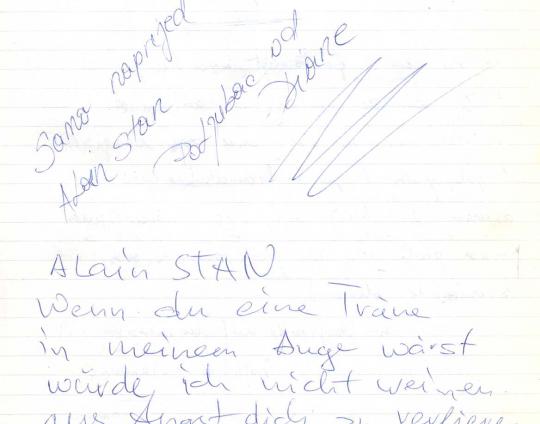 Samo naprijed
Alain Stan
Poljubac od
Diane
Alain STAN
Wenn du eine Träne
in meinem Auge wärst
würde ich nicht weinen
aus Angst dich zu verliere